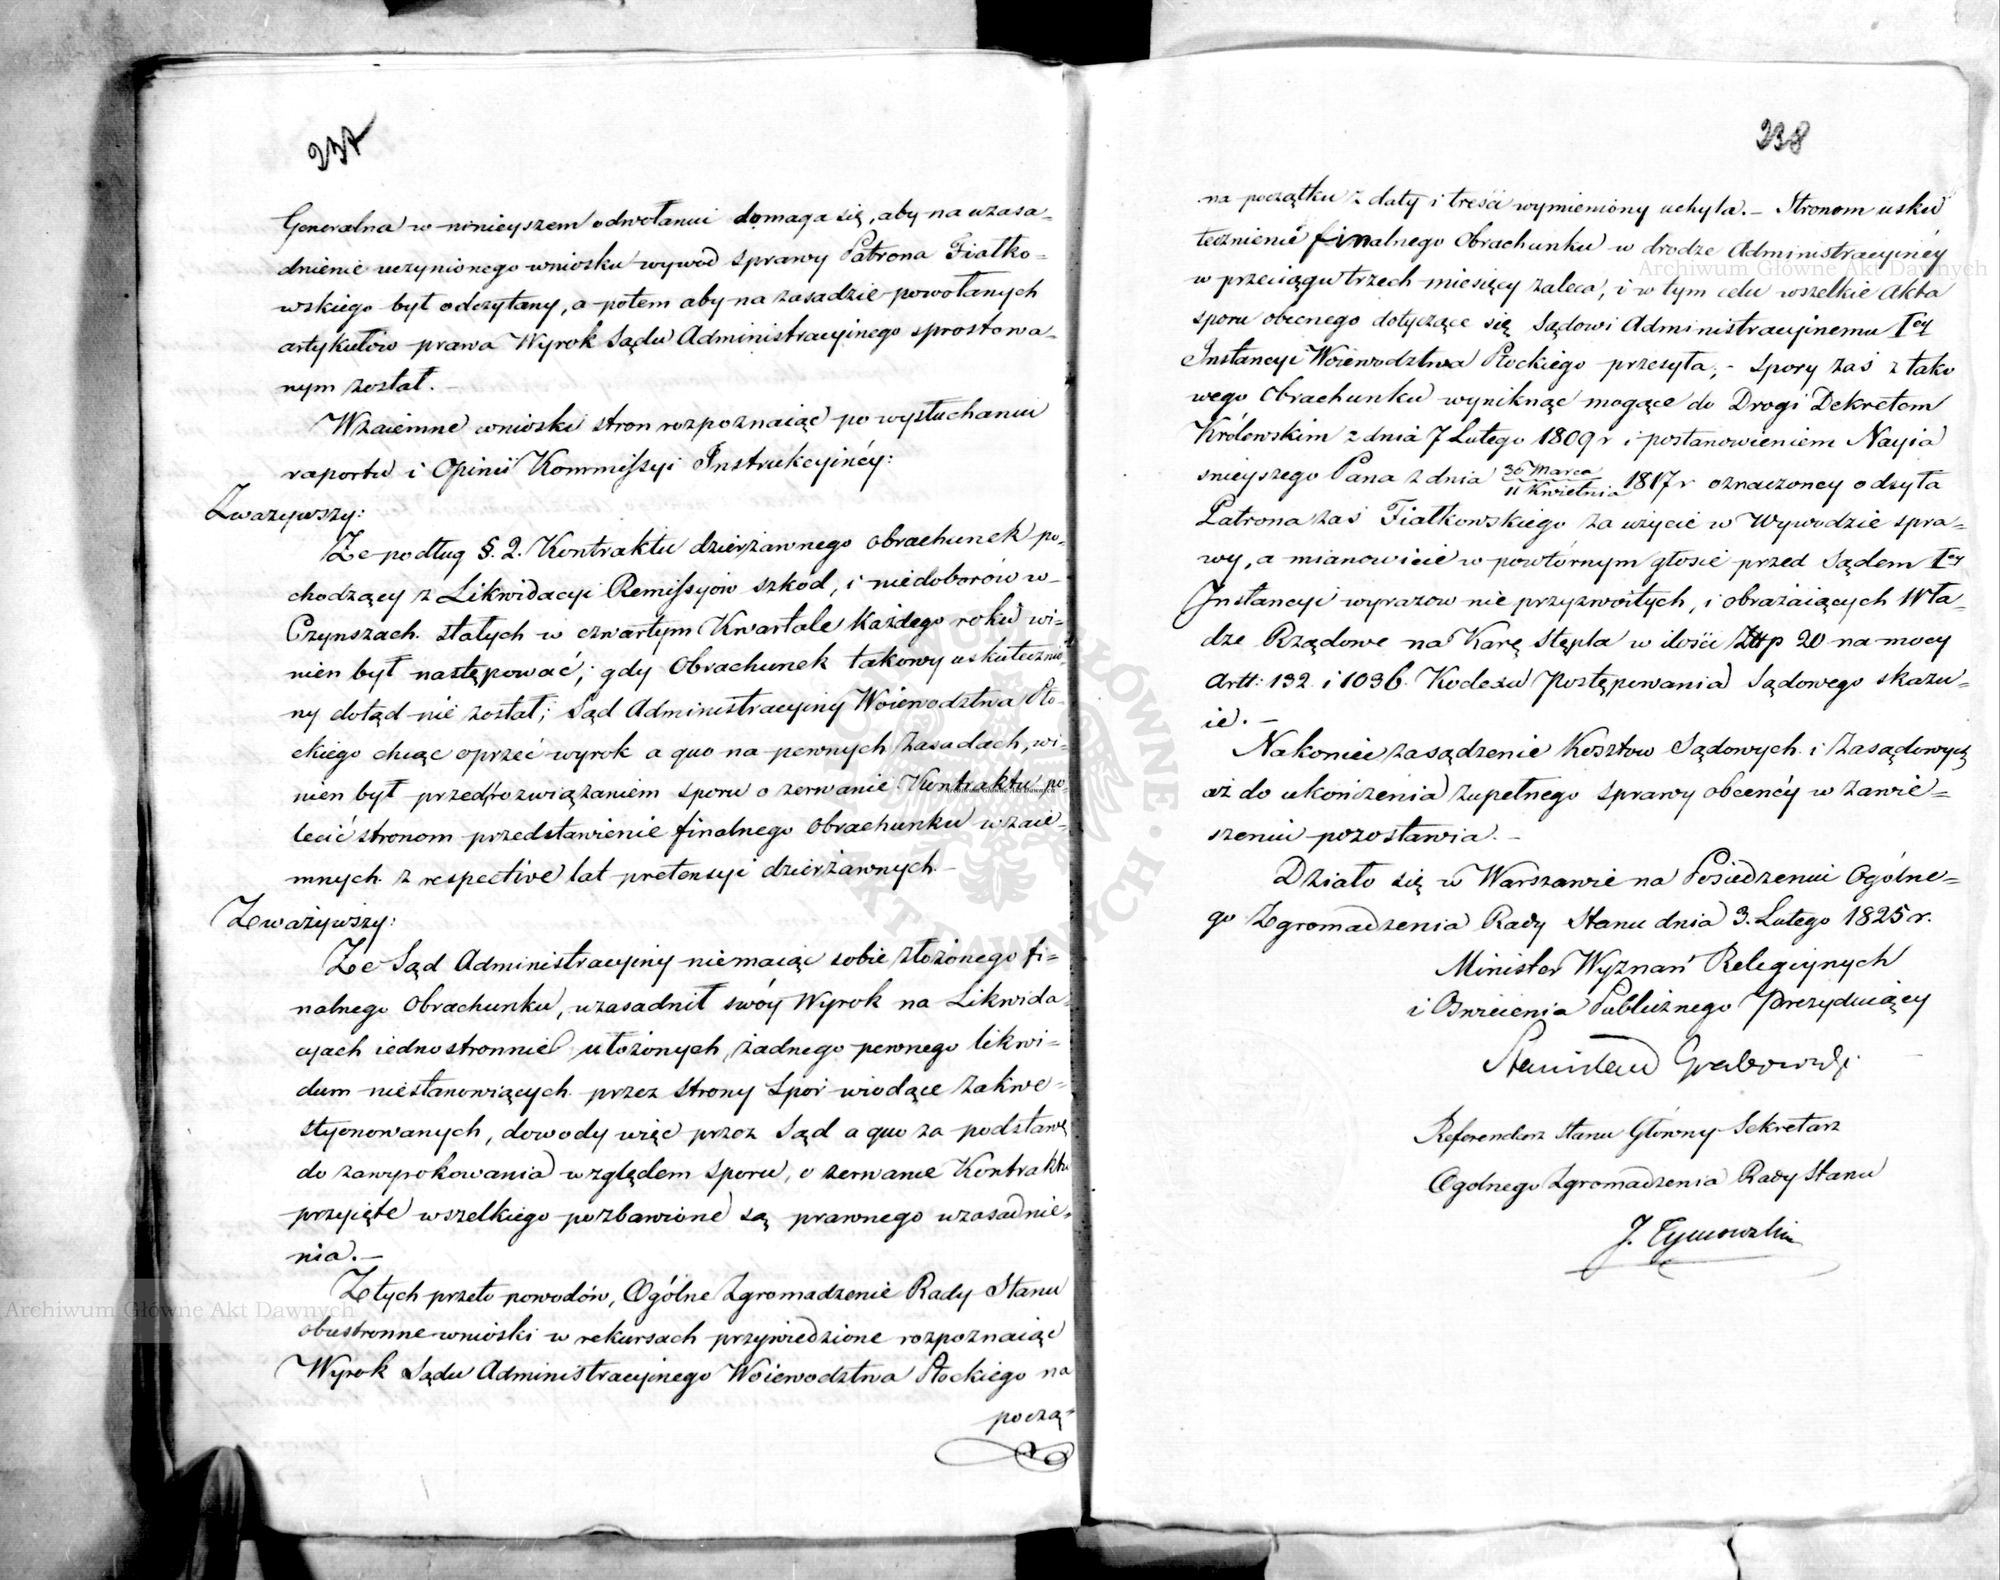 237
Generalna w ninieyszem odwołaniu domaga się, aby na uzasa-
dnienie uczynionego wniosku wywod sprawy Patrona Fiałko-
wskiego był odczytany, a potem aby na zasadzie powołanych
artykułów prawa Wyrok Sądu Administracyinego sprostowa-
nym został. –
Wzaiemne wnioski stron rozpoznaiąc po wysłuchaniu
raportu i Opinii Kommissyi Instrukcyinéy:
Zważywszy:
Że podług §. 2. Kontraktu dzierżawnego obrachunek po-
chodzący z Likwidacyi Remissyow szkod, i niedoborów w
Czynszach stałych w czwartym Kwartale każdego roku wi-
nien był następować; gdy Obrachunek takowy uskutecznio-
ny dotąd nie został; Sąd Administracyiny Woiewodztwa Pło-
ckiego chcąc oprzeć wyrok a quo na pewnych zasadach, wi-
nien był przed rozwiązaniem sporu o zerwanie Kontraktu po-
lecić stronom przedstawienie finalnego obrachunku wzaie-
mnych z respective lat pretensyi dzierżawnych –
Zważywszy:
Że Sąd Administracyiny niemaiąc sobie złożonego fi-
nalnego Obrachunku, uzasadnił swóy Wyrok na Likwida-
cyach iednostronnie ułożonych, żadnego pewnego likwi-
dum niestanowiących przez strony Spór wiodące zakwe-
styonowanych, dowody więc przez Sąd a quo za podstawę
do zawyrokowania względem sporu, o zerwanie Kontraktu
przyięte wszelkiego pozbawione są prawnego uzasadnie-
nia. –
Z tych przeto powodów, Ogólne Zgromadzenie Rady Stanu
obustronne wnioski w rekursach przywiedzione rozpoznaiąc
Wyrok Sądu Administracyinego Woiewodztwa Płockiego na
począ-
238
na początku z daty i treści wymieniony uchyla. – Stronom usku
tecznienie finalnego Obrachunku w drodze Administracyinéy
w przeciągu trzech miesięcy zaleca, i w tym celu wszelkie Akta
sporu obecnego dotyczące się Sądowi Administracyinemu Iey
Instancyi Woiewodztwa Płockiego przesyła; – Spory zaś z tako
wego Obrachunku wyniknąc mogące do Drogi Dekretem
Królewskim z dnia 7 Lutego 1809 r i postanowieniem Nayia
snieyszego Pana z dnia 30 Marca / 11 Kwietnia 1817 r oznaczoney odsyła
Patrona zaś Fiałkowskiego za użycie w Wywodzie spra-
wy, a mianowicie w powtórnym głosie przed Sądem Iey
Instancyi wyrazow nieprzyzwoitych, i obrażaiących Wła-
dze Rządowe na Karę Stępla w ilości Złłp 20 na mocy
Artt: 132 i 1036. Kodexu Postępowania Sądowego skazu-
ie. –
Nakoniec zasądzenie Kosztow Sądowych i Zasądowych
aż do ukończenia zupełnego sprawy obecnéy w zawie-
szeniu pozostawia. –
Działo się w Warszawie na Posiedzeniu Ogólne-
go Zgromadzenia Rady Stanu dnia 3. Lutego 1825 r.
Minister Wyznań Religiynych
i Oswiecenia Publicznego Prezyduiący
Stanisław Grabowski.
Referendarz Stanu Główny Sekretarz
Ogolnego Zgromadzenia Rady Stanu
J. Tymowski
Archiwum Główne Akt Dawnych
Archiwum Główne Akt Dawnych